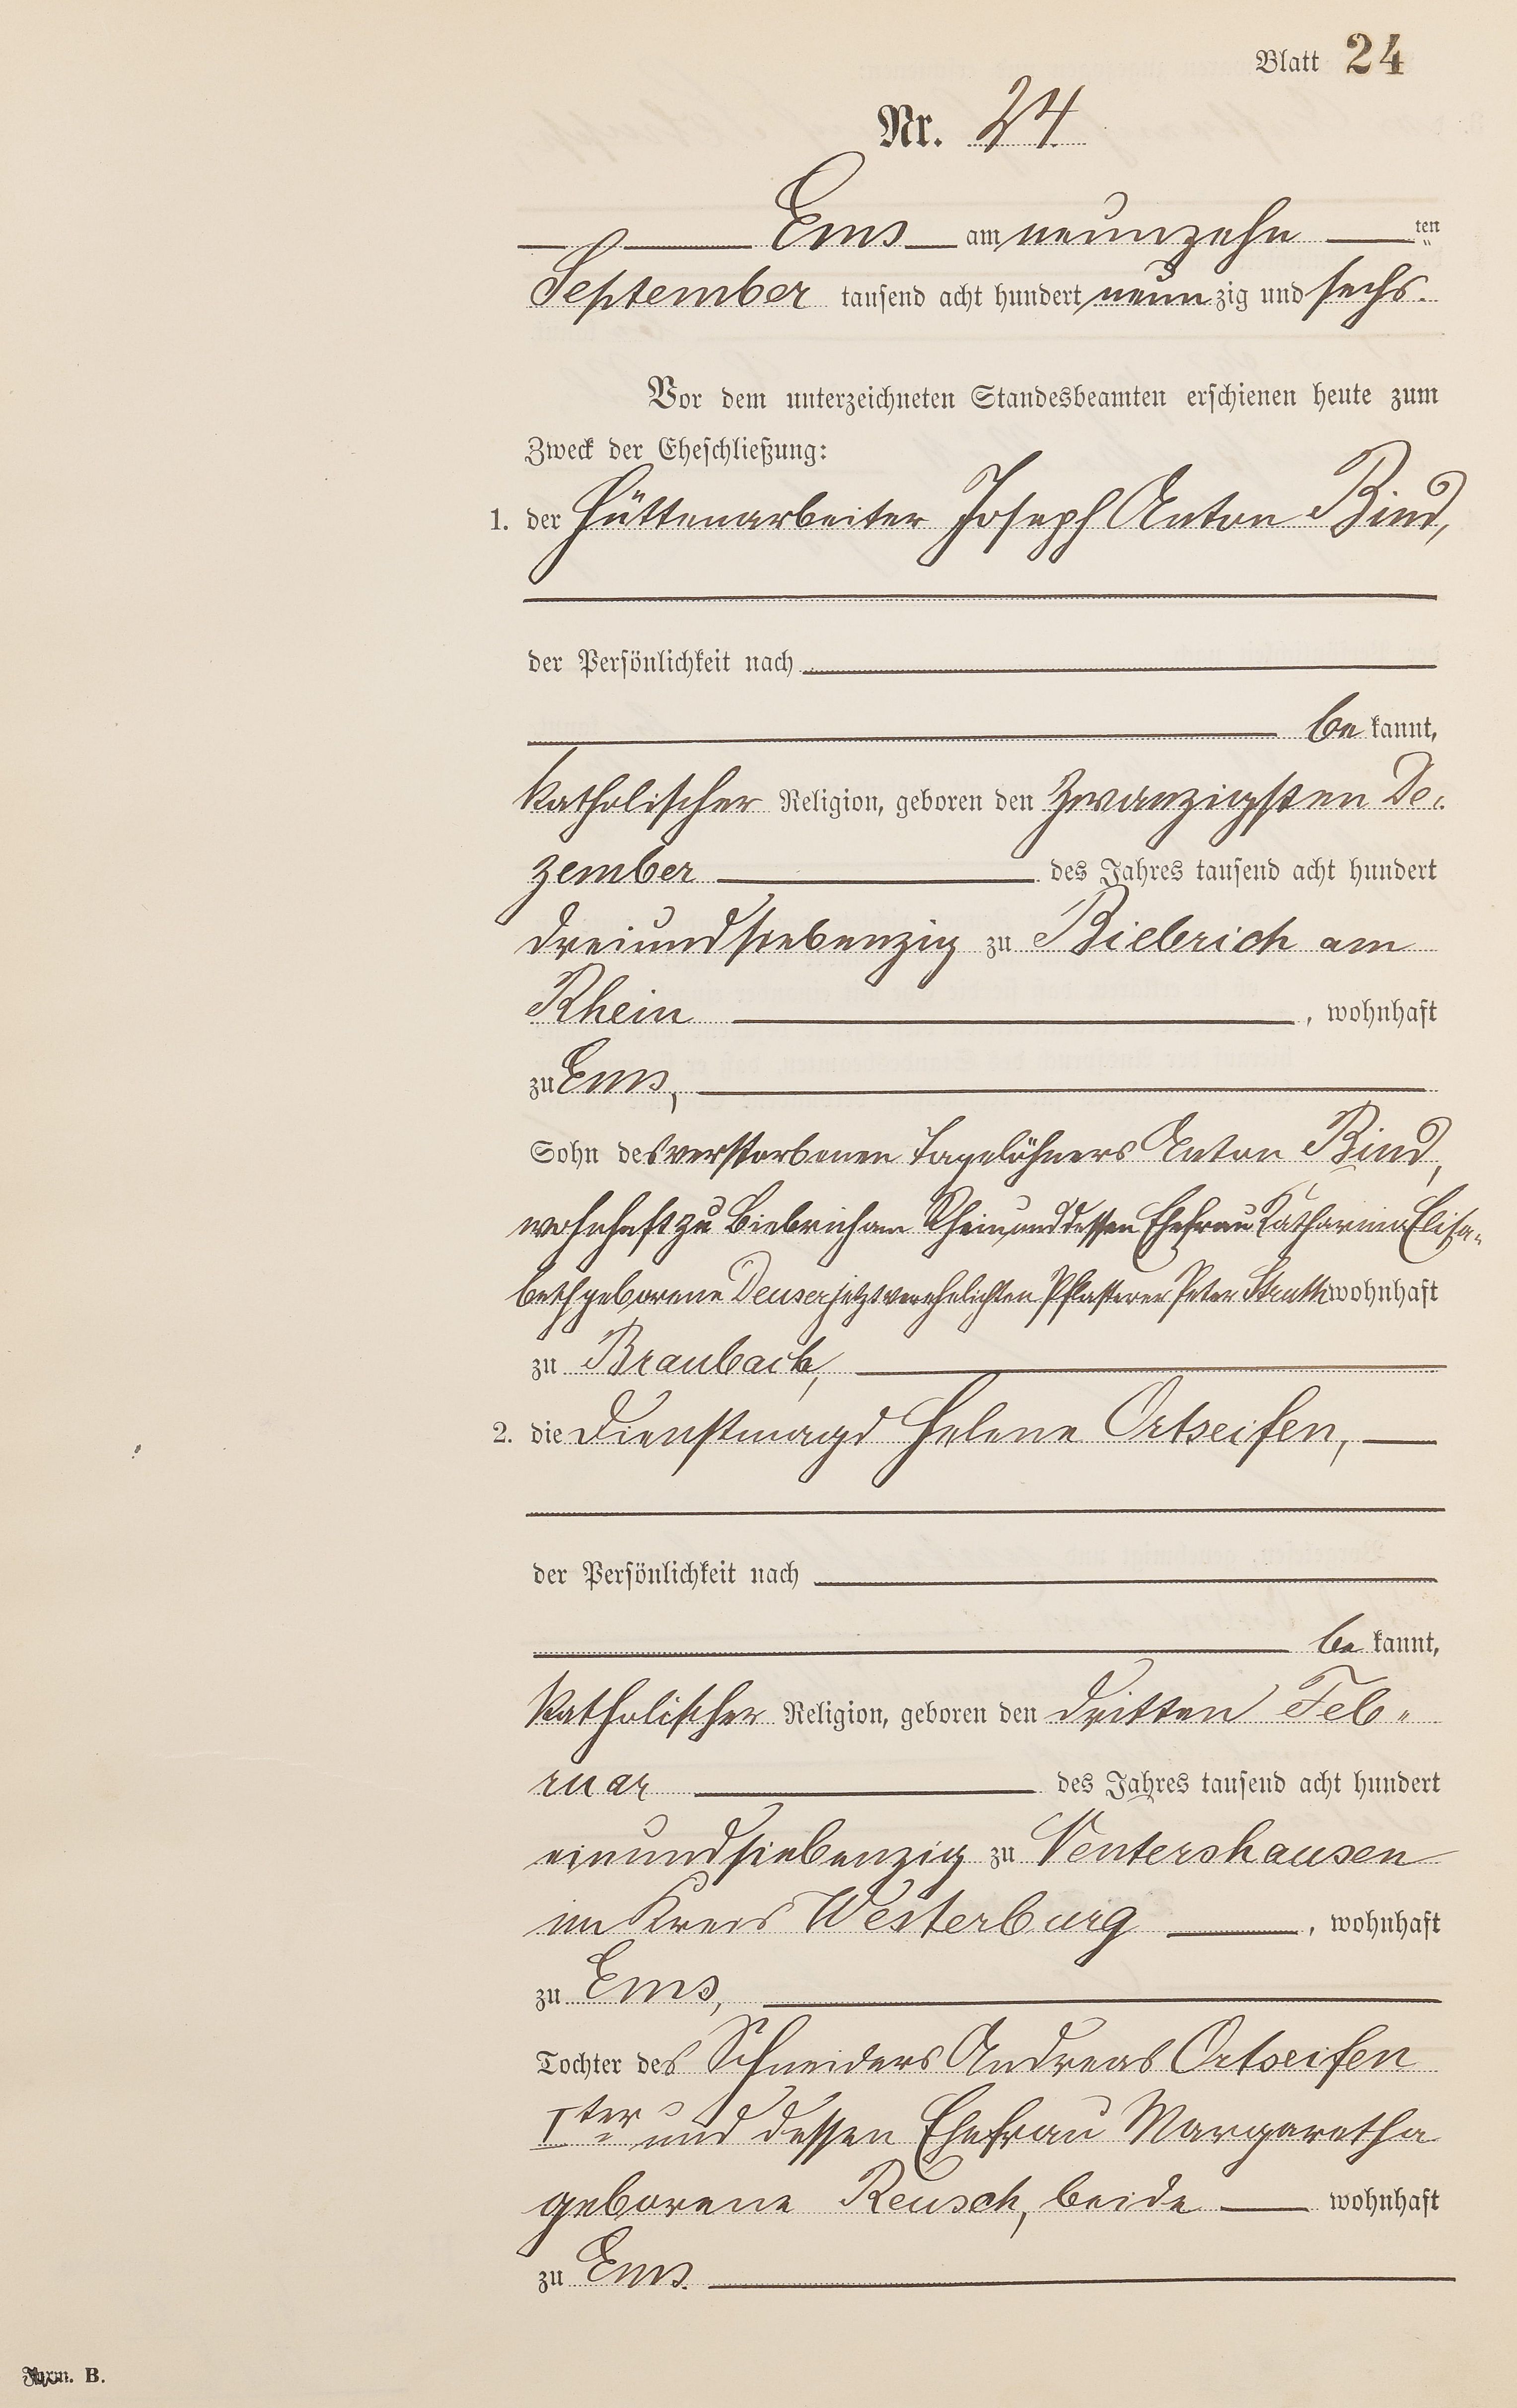 Blatt 24
Nr. 24
Ems am neunzehn ten
September tausend acht hundert neunzig und sechs.
Vor dem unterzeichneten Standesbeamten erschienen heute zum
Zweck der Eheschließung:
1. der Hüttenarbeiter Joseph Anton Bind,
der Persönlichkeit nach
be kannt,
katholischer Religion, geboren den zwanzigsten De-
zember des Jahres tausend acht hundert
dreiundsiebenzig zu Biebrich am
Rhein, wohnhaft
zu Ems,
Sohn des verstorbenen Tagelöhners Anton Bind,
wohnhaft zu Biebrich am Rhein und dessen Ehefrau Katharina Elisa-
beth geborene Deuser jetzt verehelichten Pflasterer Peter wohnhaft
zu Braubach,
2. die Dienstmagd Helene Ortseifen,
der Persönlichkeit nach
be kannt,
katholischer Religion, geboren den dritten Feb-
ruar des Jahres tausend acht hundert
einundsiebenzig zu Wentershausen
im Kreis Westerburg, wohnhaft
zu Ems,
Tochter des Schneiders Andreas Ortseifen
Iter und dessen Ehefrau Margaretha
geborene Reusch, beide wohnhaft
zu Ems.
Form. B.